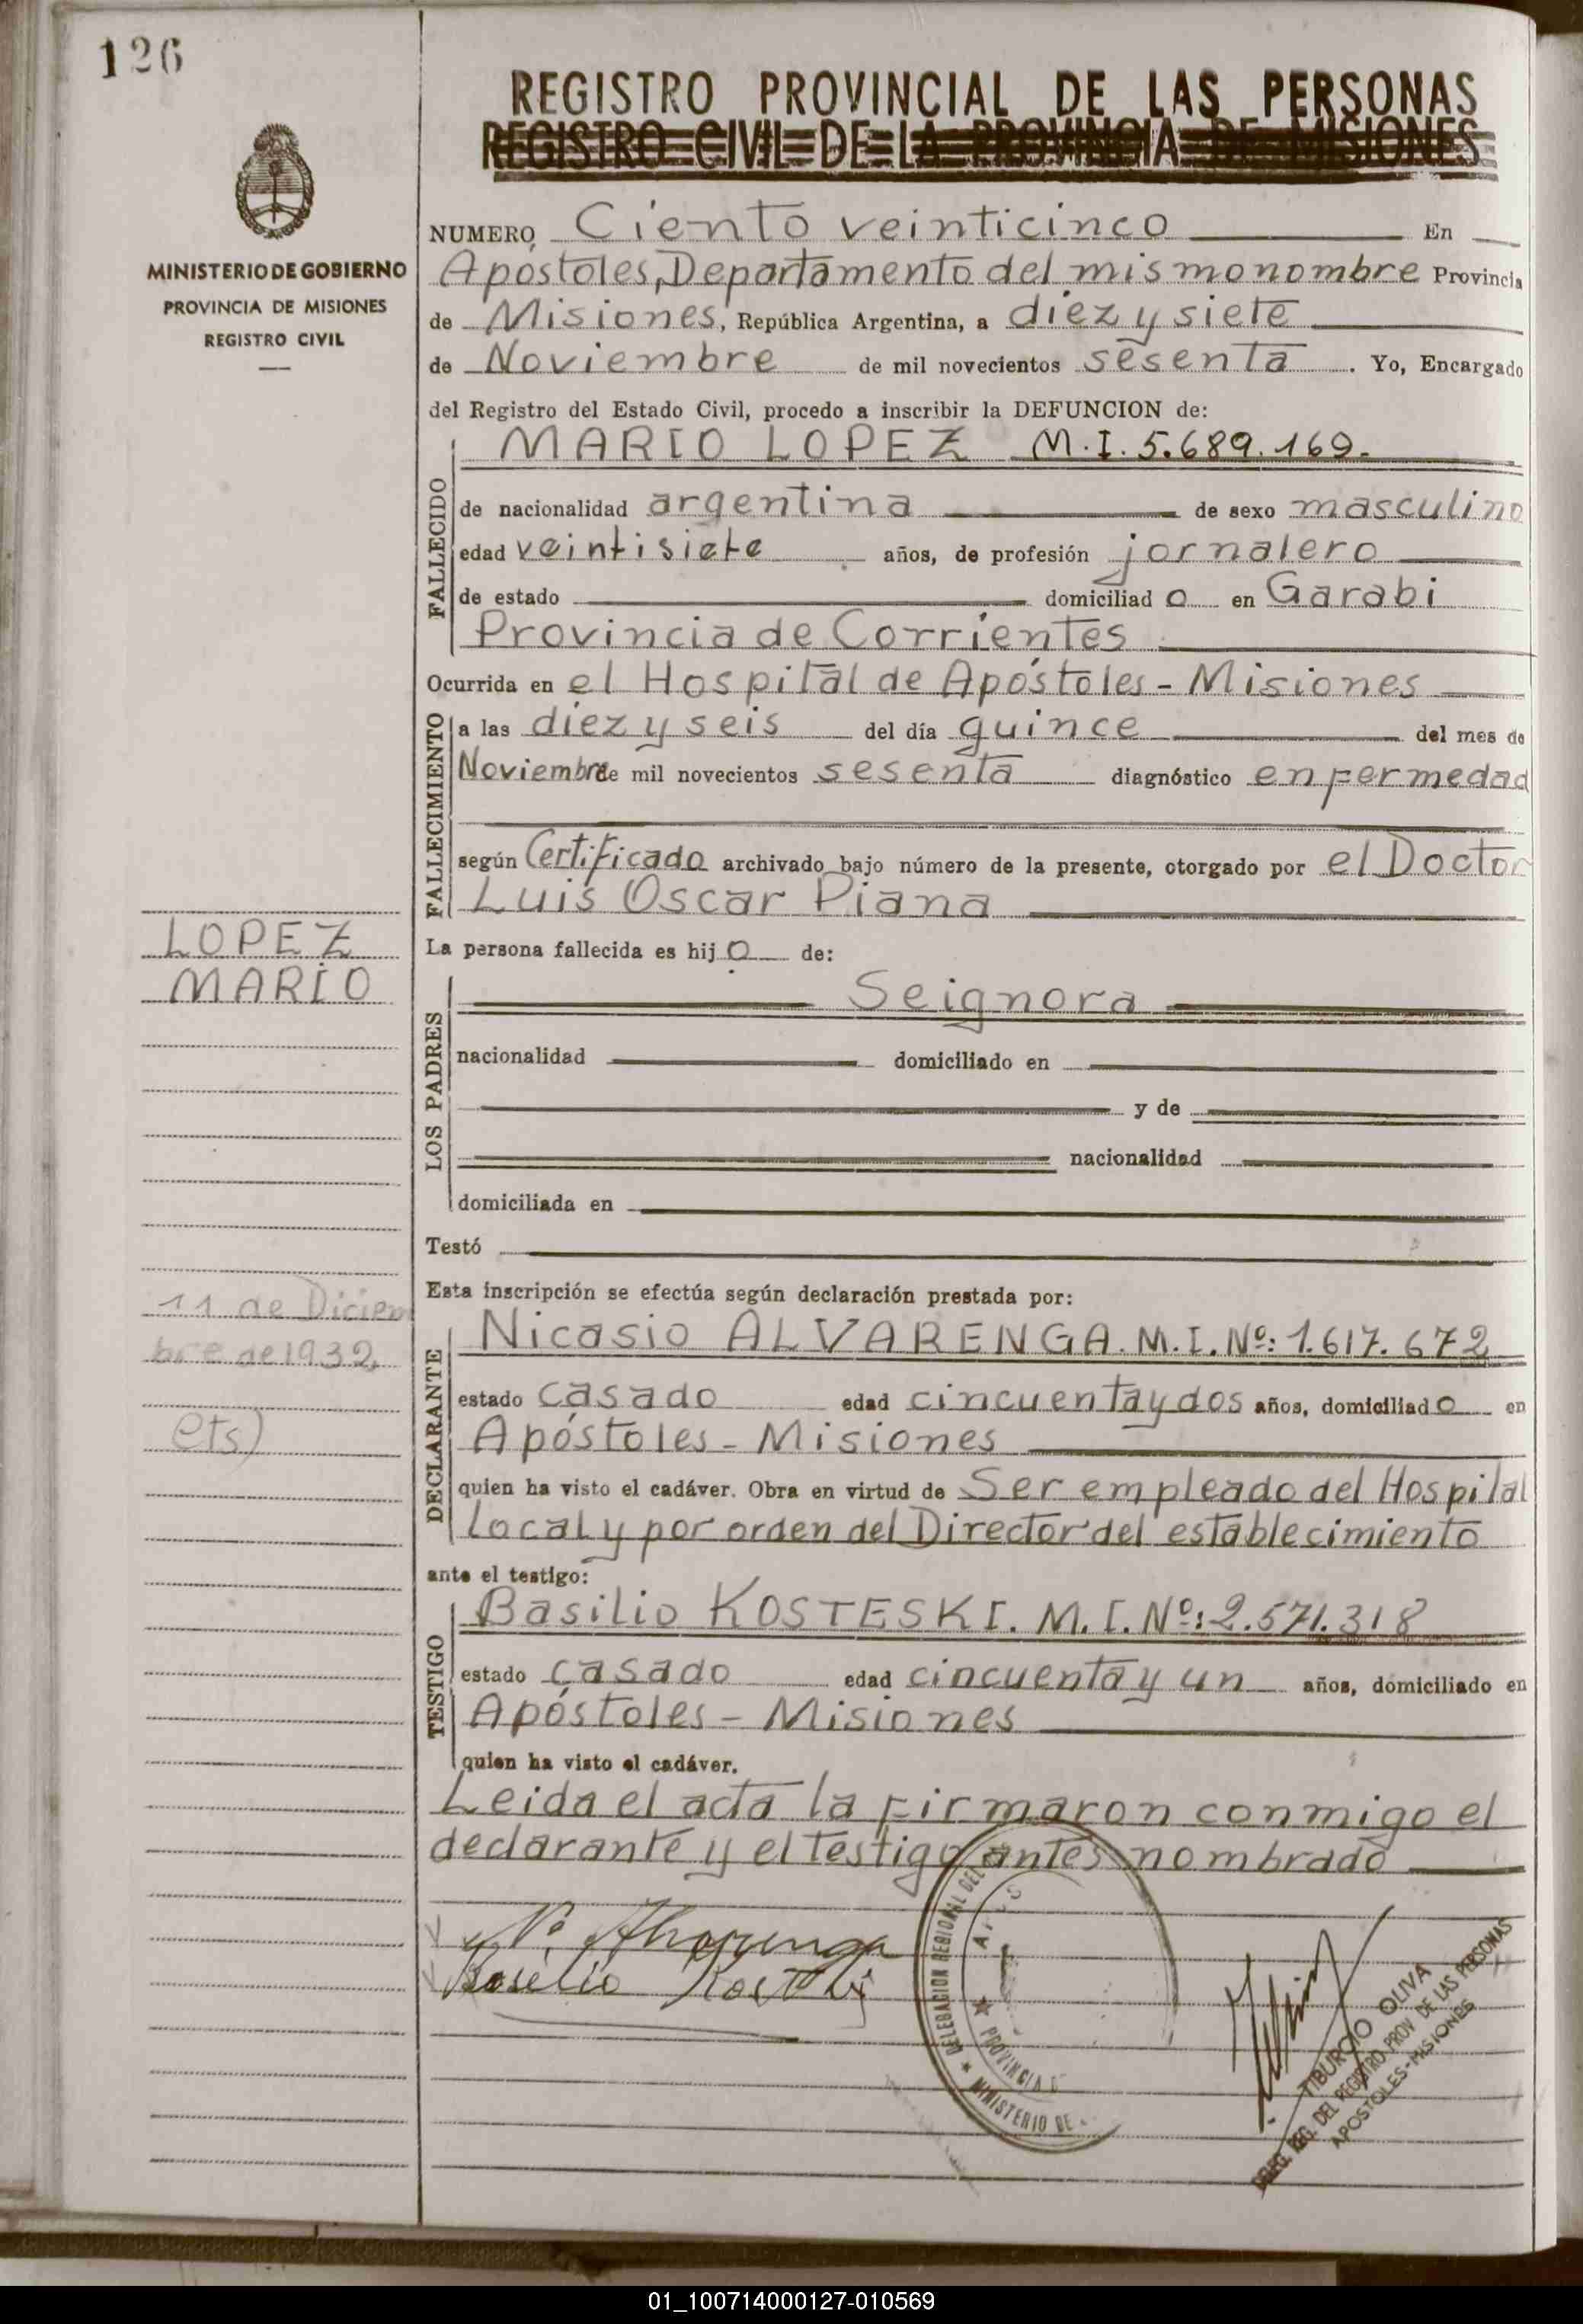 126
REGISTRO PROVINCIAL DE LAS PERSONAS
REGISTRO CIVIL DE LA PROVINCIA DE MISIONES
MINISTERIO DE GOBIERNO
PROVINCIA DE MISIONES
REGISTRO CIVIL
NUMERO Ciento veinticinco En
Apóstoles, Departamento del mismo nombre Provincia
de Misiones, República Argentina, a diez y siete
de Noviembre de mil novecientos sesenta. Yo, Encargado
del Registro del Estado Civil, procedo a inscribir la DEFUNCION de:
FALLECIDO
MARIO LOPEZ M.I. 5.689.169.
de nacionalidad argentina de sexo masculino
edad veintisiete años, de profesión jornalero
de estado domiciliado en Garabi
Provincia de Corrientes
Ocurrida en el Hospital de Apóstoles - Misiones
FALLECIMIENTO
a las diez y seis del día quince del mes de
Noviembre de mil novecientos sesenta diagnóstico enfermedad
según Certificado archivado bajo número de la presente, otorgado por el Doctor
Luis Oscar Piana
LOPEZ
MARIO
La persona fallecida es hijo de:
LOS PADRES
Seignora
nacionalidad domiciliado en
y de
nacionalidad
domiciliada en
Testó
11 de Diciem
bre de 1932
ets)
Esta inscripción se efectúa según declaración prestada por:
DECLARANTE
Nicasio ALVARENGA. M.I. Nº: 1.617.672
estado casado edad cincuenta y dos años, domiciliado en
Apóstoles - Misiones
quien ha visto el cadáver. Obra en virtud de Ser empleado del Hospital
Local y por orden del Director del establecimiento
ante el testigo:
TESTIGO
Basilio KOSTESKI. M.I. Nº: 2.571.318
estado casado edad cincuenta y un años, domiciliado en
Apóstoles - Misiones
quien ha visto el cadáver.
Leida el acta la firmaron conmigo el
declarante y el testigo antes nombrado
Basilio
DELEGACION REGIONAL DEL
PROVINCIA
MINISTERIO DE
TIBURCIO OLIVA
DELEG. REG. DEL REGISTRO PROV. DE LAS PERSONAS
APOSTOLES-MISIONES
01_100714000127-010569